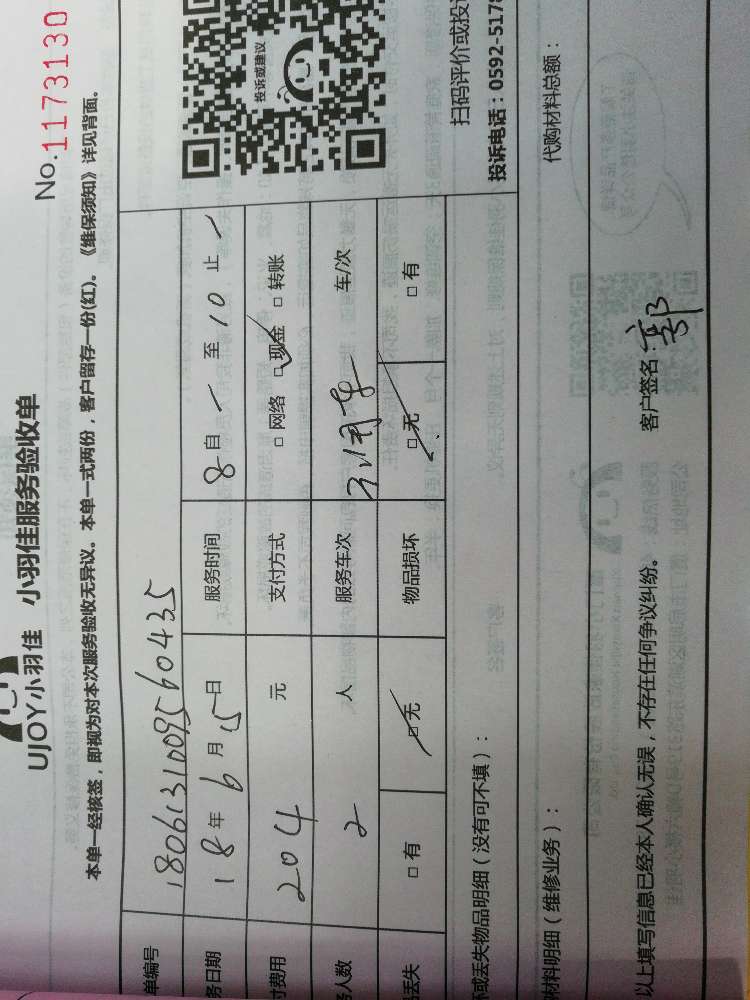 UJOY小羽佳 小羽佳服务验收单
No.1173130
本单一经核签，即视为对本次服务验收无异议。本单一式两份，客户留存一份(红)。《维保须知》详见背面。
单编号 1806131009560435
务日期 18年6月15日 服务时间 8自 至10止
付费用 204 元 支付方式 □ 网络 □ 现金 □ 转账
务人数 2 人 服务车次 车/次
丢失 □ 有 □ 无 物品损坏 □ 无 □ 有
投诉或建议
扫码评价或投
投诉电话：0592-5178
坏或丢失物品明细（没有可不填）：
材料明细（维修业务）： 代购材料总额：
以上填写信息已经本人确认无误，不存在任何争议纠纷。 客户签名：郭